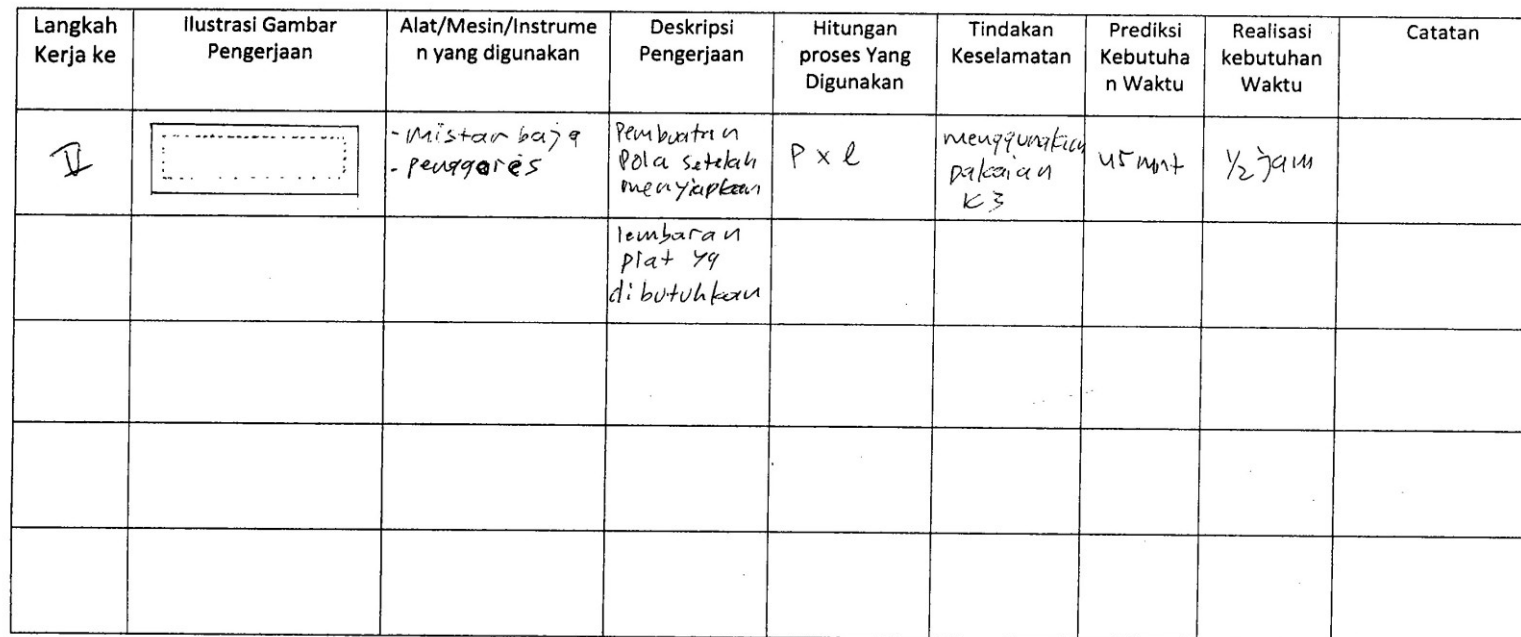 Langkah Kerja ke
Ilustrasi Gambar Pengerjaan
Alat/Mesin/Instrume n yang digunakan
Deskripsi Pengerjaan
Hitungan proses Yang Digunakan
Tindakan Keselamatan
Prediksi Kebutuha n Waktu
Realisasi kebutuhan Waktu
Catatan
II
- Mistar baja
- penggores
Pembuatan
Pola setelah
menyiapkan
P x l
menggunakan
pakaian
K3
45 mnt
1/2 jam
lembaran
plat yg
dibutuhkan